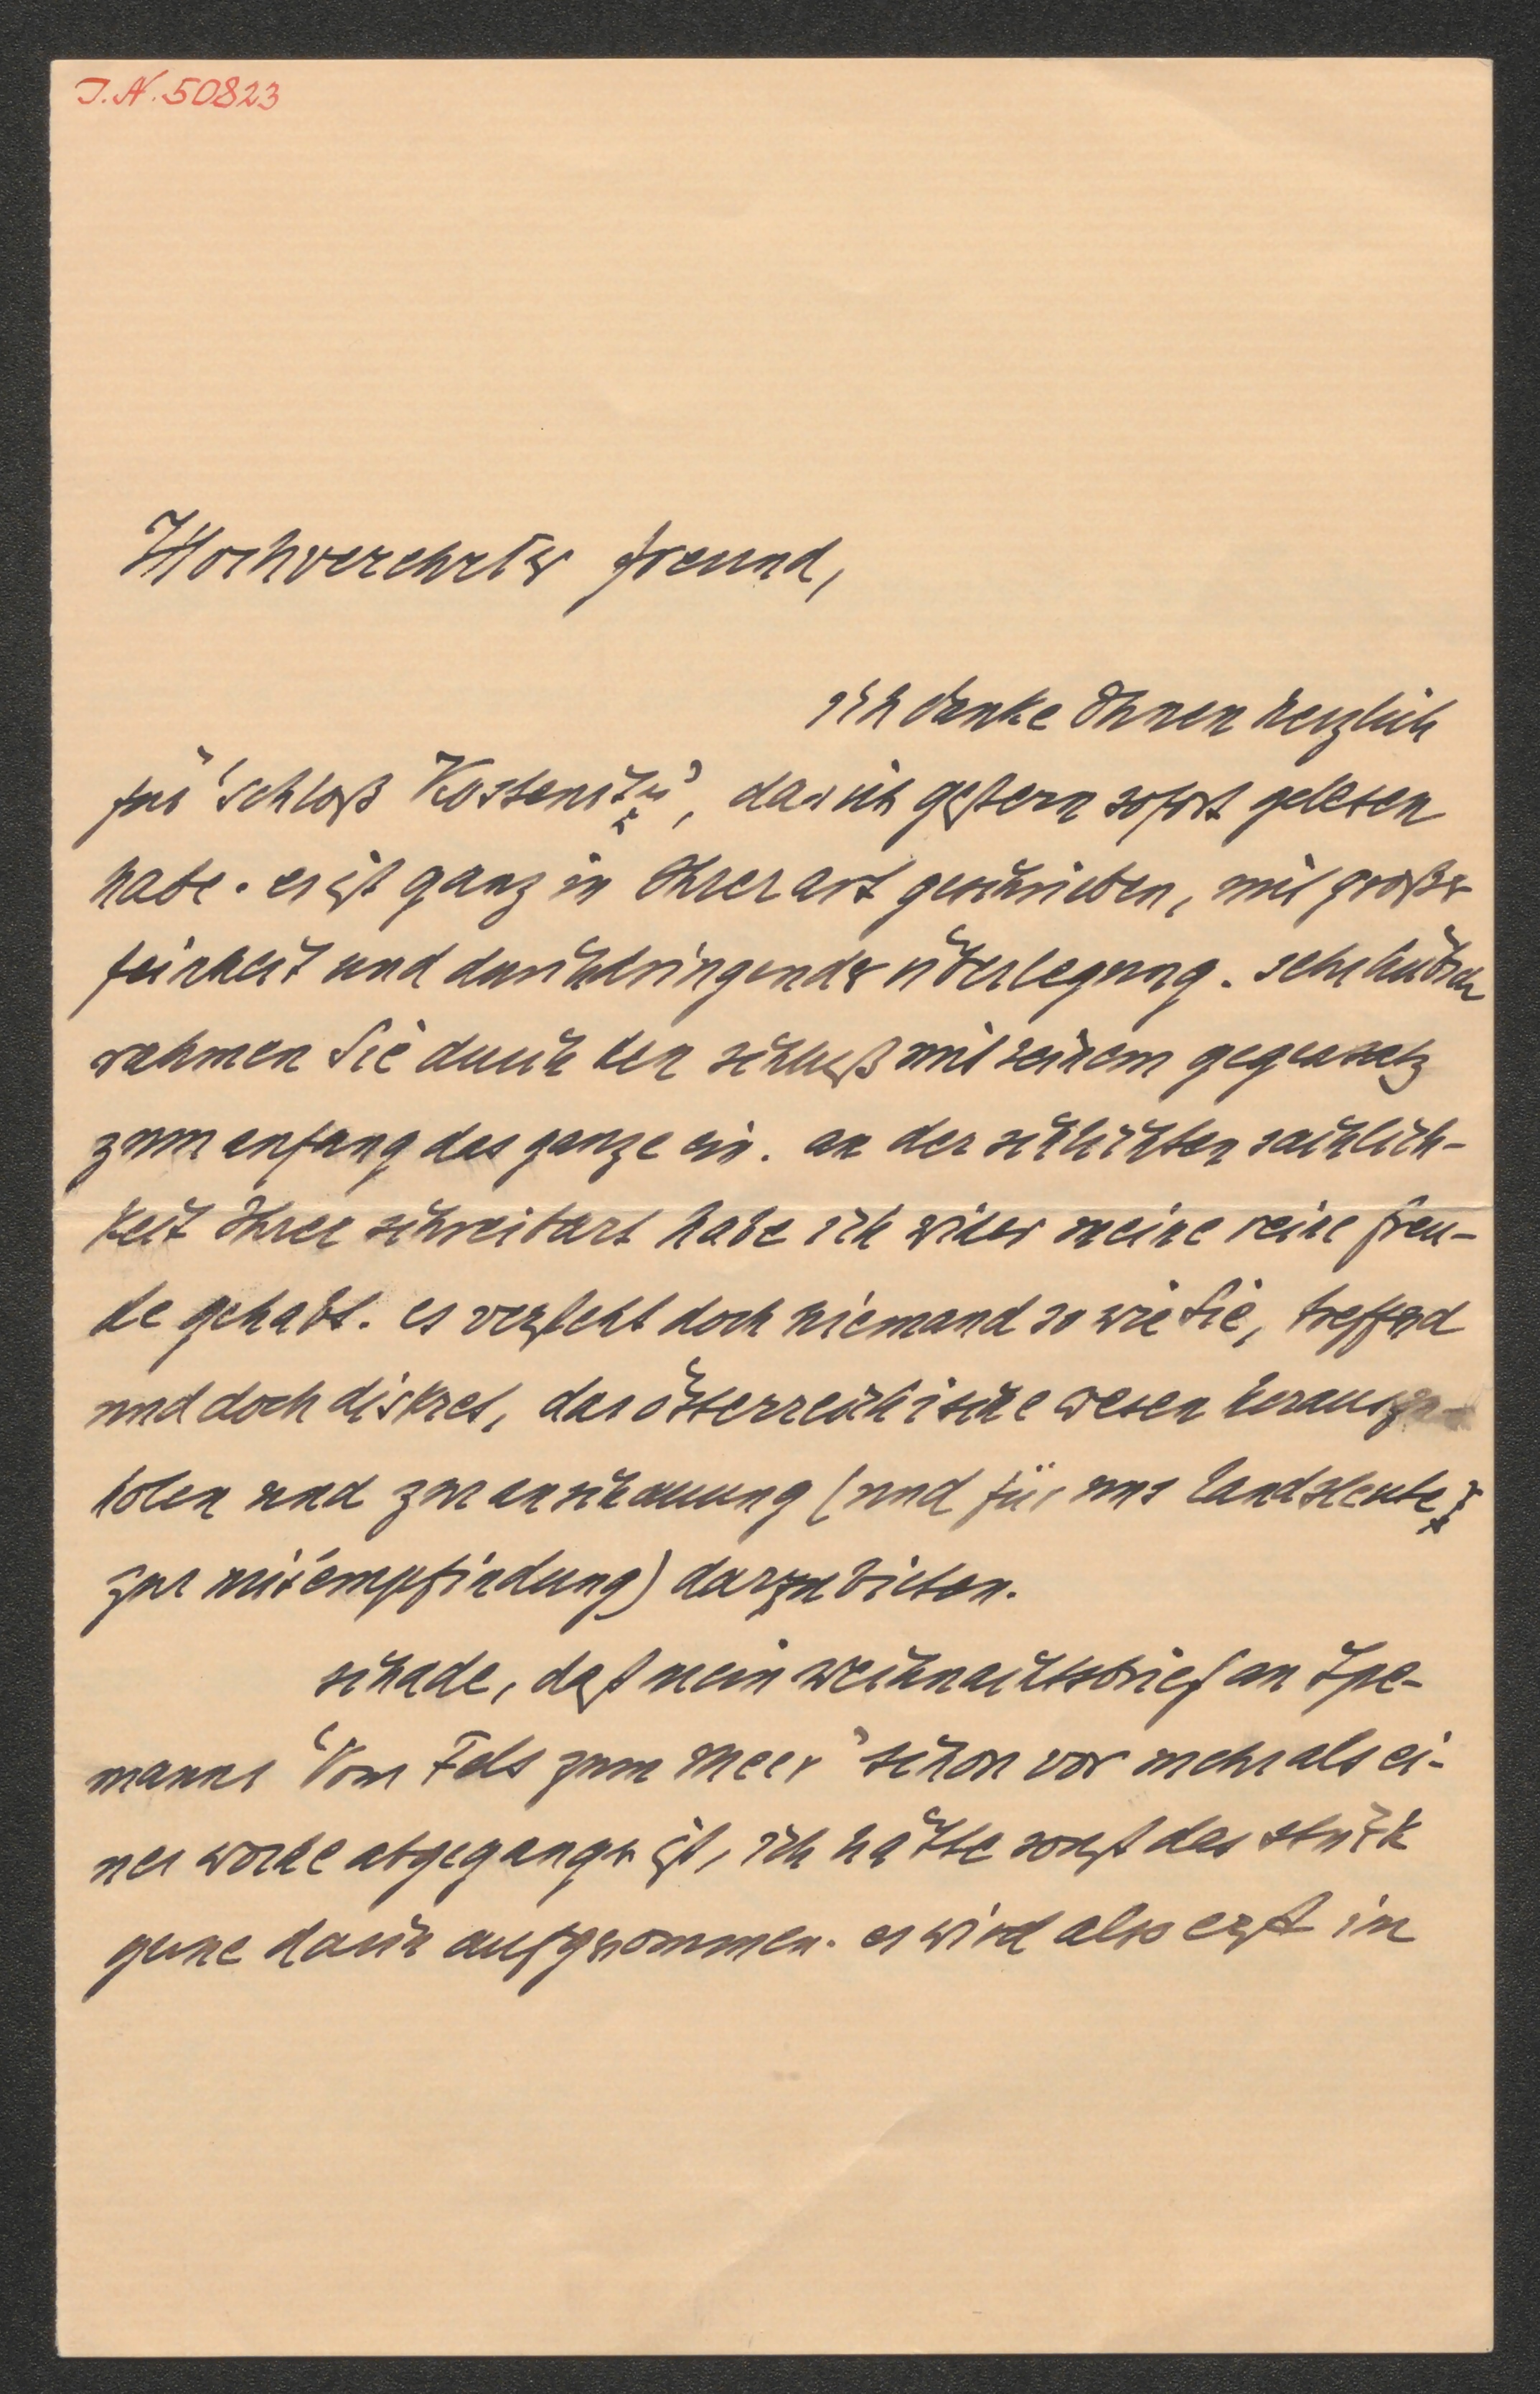 I.N. 50823
Hochverehrter freund,
ich danke Ihnen herzlich
für "Schloß Kostenitz", das ich gestern sofort gelesen
habe. es ist ganz in Ihrer art geschrieben, mit großer
feinheit und durchdringender überlegung. sehr hübsch
rahmen Sie durch den schluß mit seinem gegensatz
zum anfang das ganze ein. an der schlichten sachlich-
keit Ihrer schreibart habe ich wider meine reine freu-
de gehabt. es versteht doch niemand so wie Sie, treffend
und doch diskret, das österreichische wesen herauszu-
holen und zur anschauung (und für uns landsleute,
zur mitempfindung) darzubieten.
schade, dass mein weihnachtsbrief an Spe-
manns "Vom Fels zum Meer" schon vor mehr als ei-
ner woche abgegangen ist, ich hätte sonst das stück
gerne darin aufgenommen. es wird also erst im